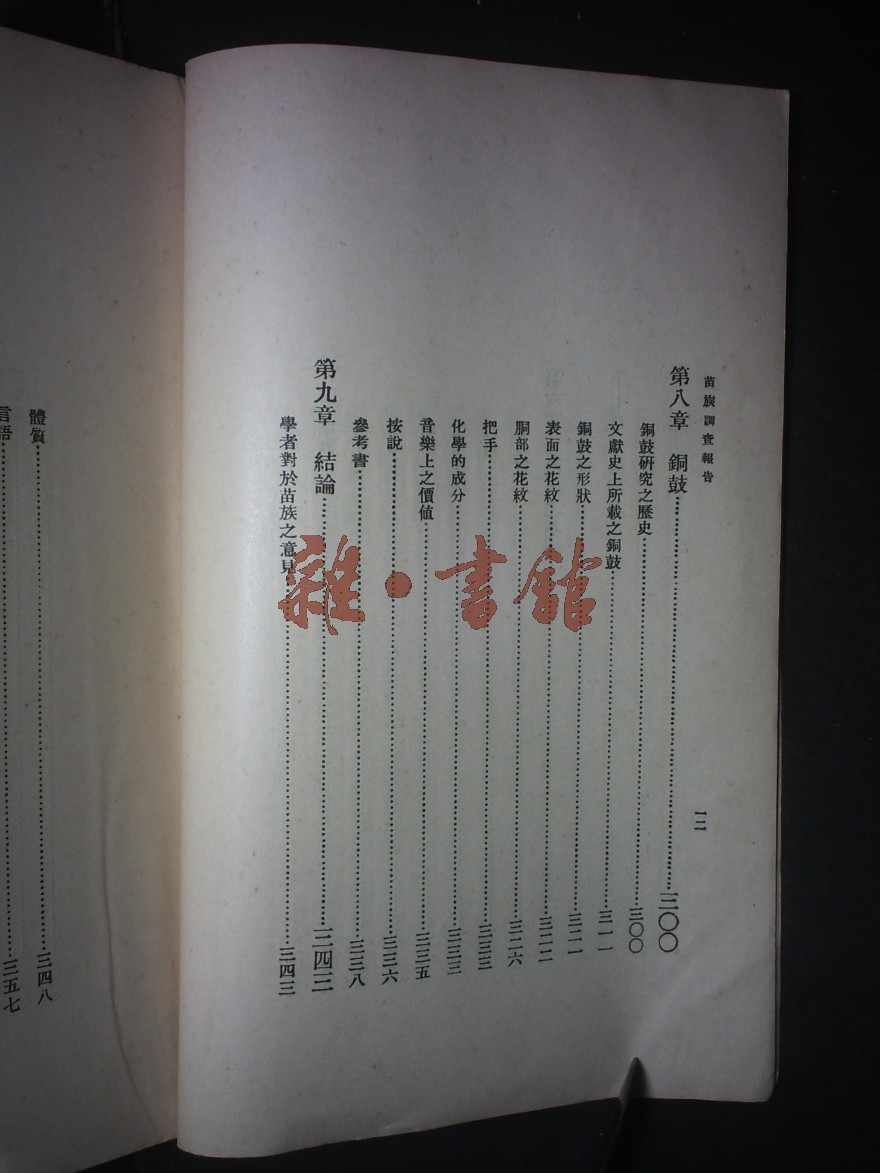 苗族調查報告
一二
第八章　銅鼓……三〇〇
銅鼓研究之歷史……三〇〇
文獻史上所載之銅鼓……三一一
銅鼓之形狀……三二一
表面之花紋……三二二
胴部之花紋……三二六
把手……三三三
化學的成分……三三三
音樂上之價値……三三五
按說……三三六
參考書……三三八
第九章　結論……三四三
學者對於苗族之意見……三四三
體質……三四八
言語……三五七
雜·書館